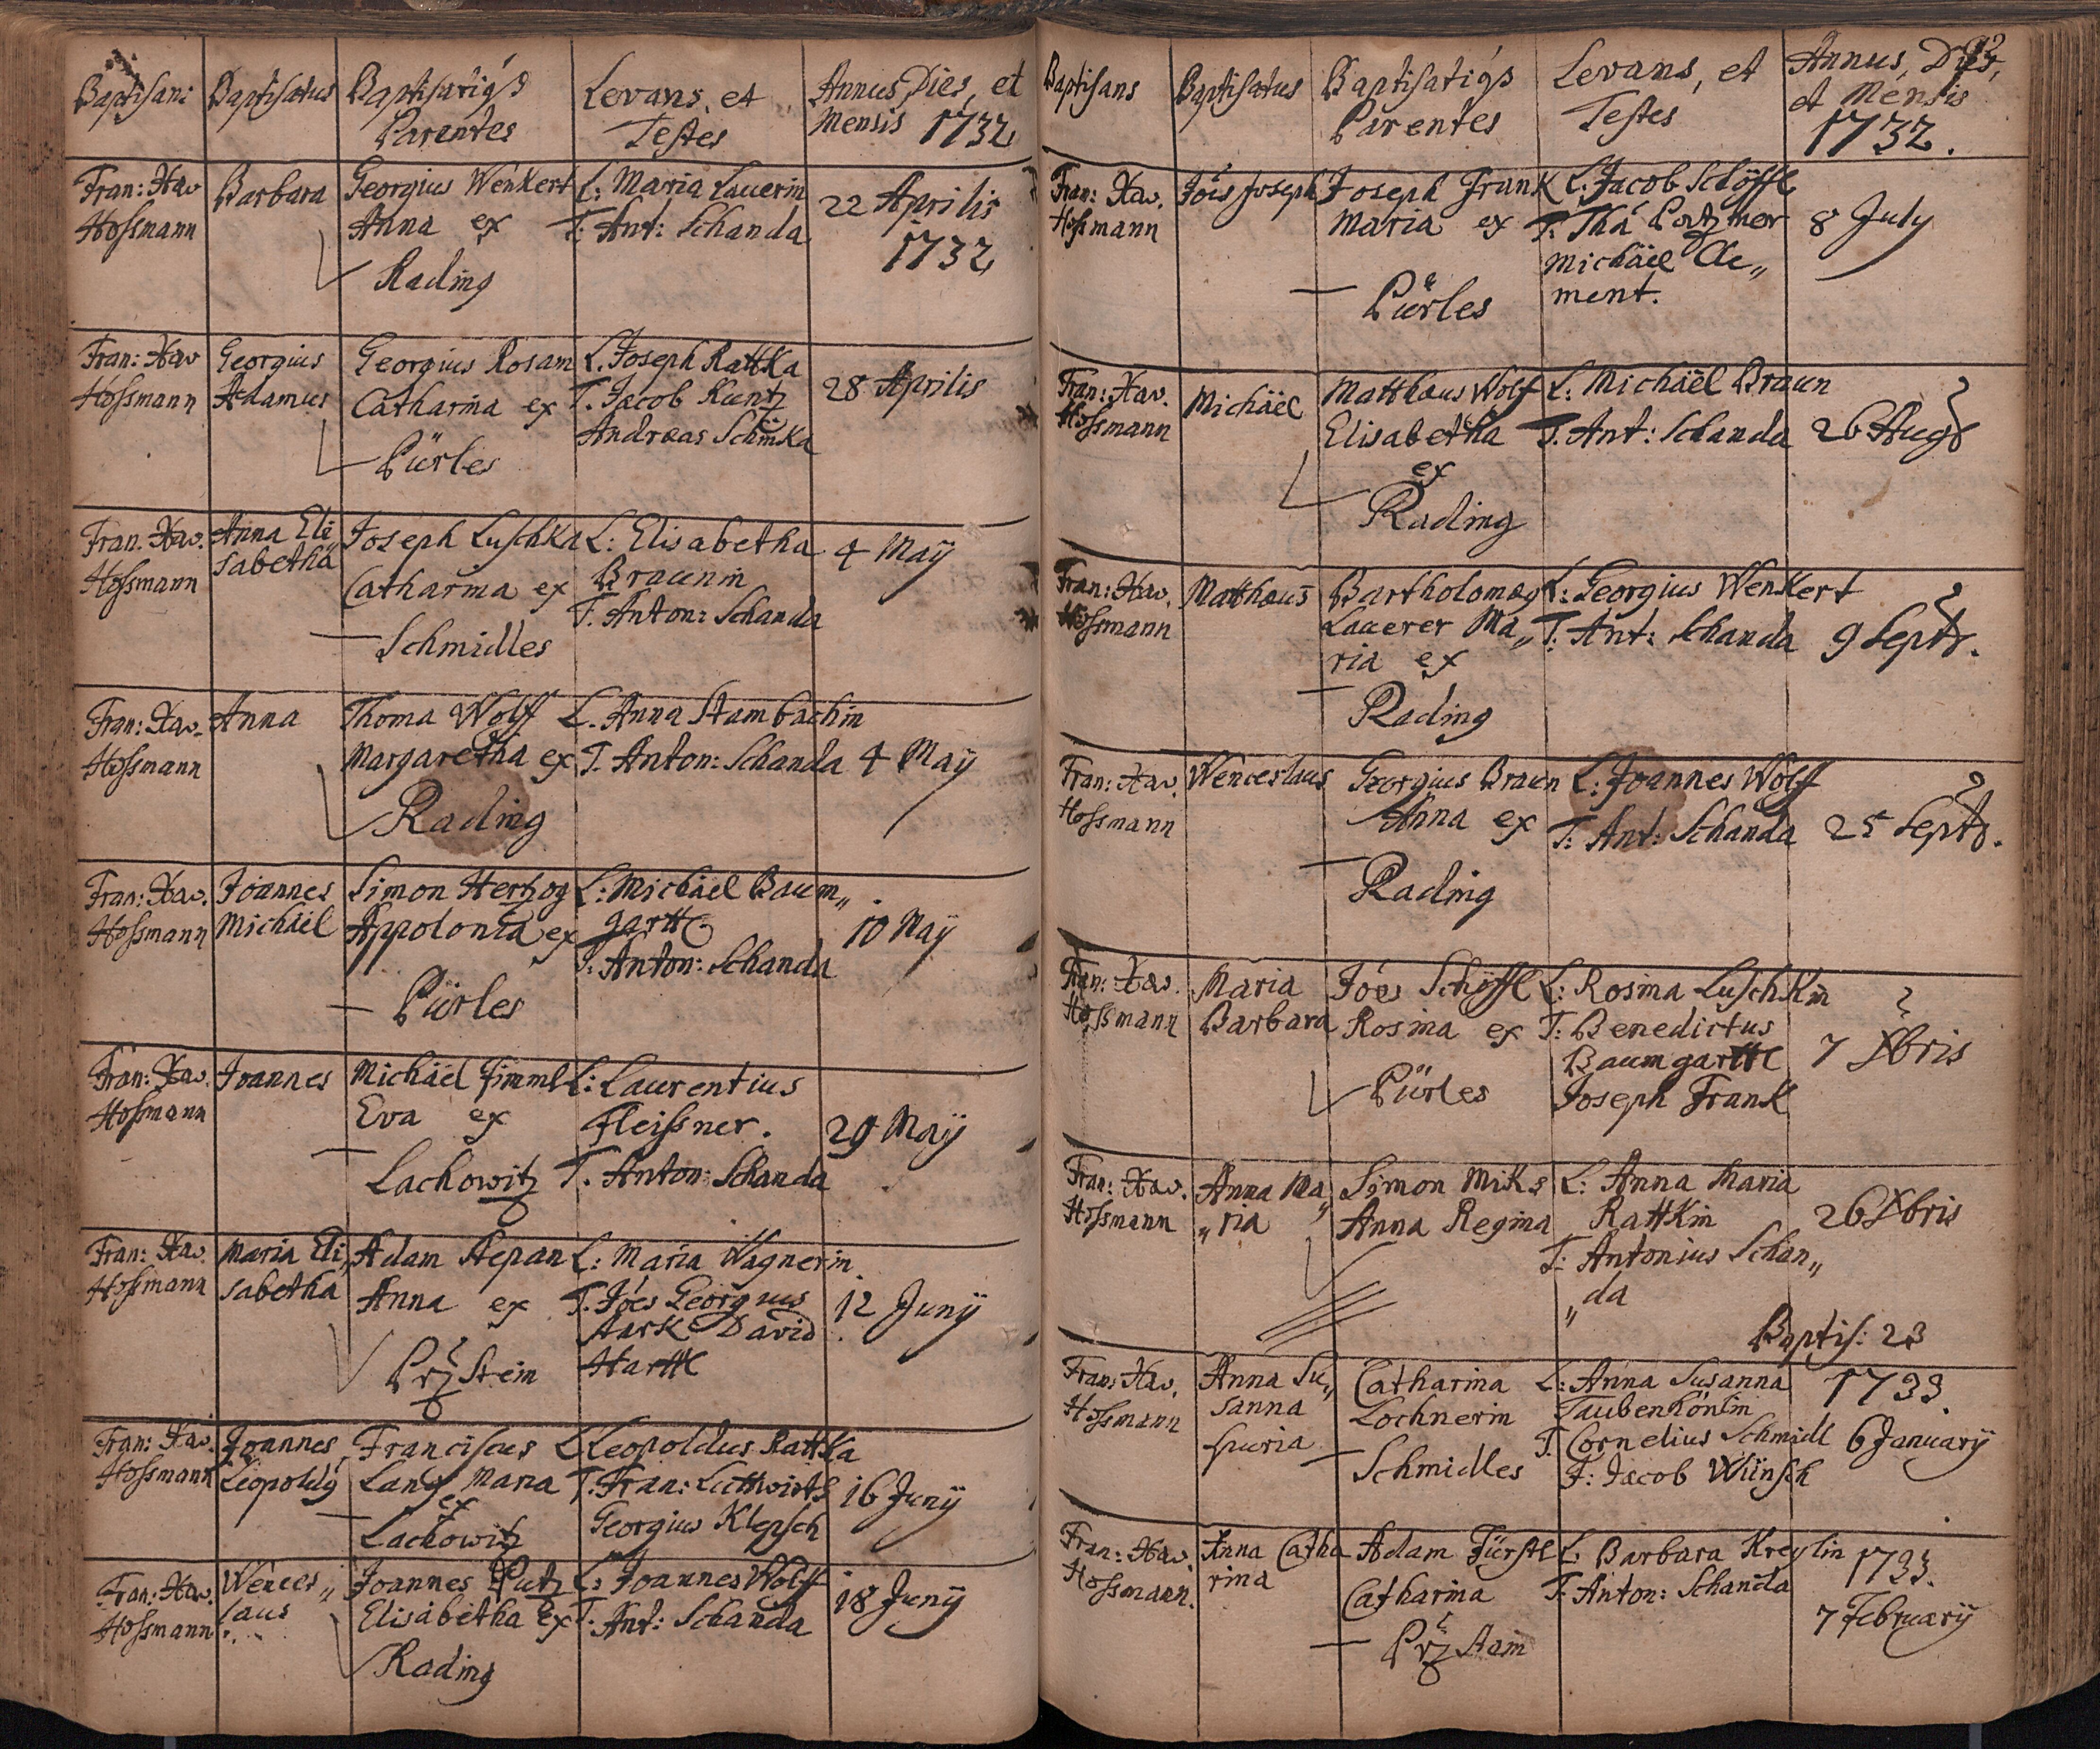 Baptisans
Baptisatus
Baptisatigs
Parentes
Levans, et
Testes
Annus, Dies, et
Mensis 1732
Fran: Xav
Hossmann
Barbara
Georgius Wenkert
Anna ex
Rading
L: Maria Lauerin
T: Ant: Schanda
22 Aprilis
1732
Fran: Xav
Hossmann
Georgius
Adamus
Georgius Rosam
Catharina ex
Pürles
L. Joseph Rattka
T. Jacob Kuntz
Andreas Schinka
28 Aprilis
Fran. Xav.
Hossmann
Anna Eli
sabetha
Joseph Luschka
Catharina ex
Schmidles
L: Elisabetha
Braunin
T. Anton: Schanda
4 Maÿ
Fran: Xav.
Hossmann
Anna
Thoma Wolff
Margaretha ex
Rading
L. Anna Stambachin
T. Anton: Schanda
4 Maÿ
Fran: Xav.
Hossmann
Joannes
Michäel
Simon Hertzog
Appolonia ex
Pürles
L: Michäel Baum„
gartl
T. Anton: Schanda
10 Maÿ
Fran: Xav.
Hossmann
Joannes
Michäel Fimml
Eva ex
Lachowitz
L: Laurentius
Fleissner.
T. Anton: Schanda
29 Maÿ
Fran: Xav.
Hossmann
Maria Eli„
sabetha
Adam Stepan
Anna ex
Przstein
L: Maria Wagnerin
T. Jóes Georgius
Stark David
Hartl
12 Junÿ
Fran: Xav.
Hossmann
Joannes
Leopoldg
Franciscus
Lang Maria
ex
Lachowitz
L Leopoldus Rattka
T. Fran: Luttwirth
Georgius Klepsch
16 Junÿ
Fran: Xav.
Hossmann
Wences„
laus
Joannes Putz
Elisabetha ex
Rading
L: Joannes Wolff
T. Ant: Schanda
18 Junÿ
Baptisans
Baptisatus
Baptisatigs
Parentes
Levans, et
Testes
Annus, Dies,
et Mensis
1732.
Fran: Xav.
Hossmann
Jois Joseph
Joseph Frank
Maria ex
Pürles
L. Jacob Schöffl
T. Thá Patzner
Michäel Cle„
ment.
8 July
Fran: Xav.
Hossmann
Michäel
Matthæus Wolf
Elisabetha
ex
Rading
L: Michäel Braun
T. Ant: Schanda
26 Aug
Fran: Xav.
Hossmann
Matthæus
Bartholomæg
Lauerer Ma„
ria ex
Rading
L: Georgius Wenkert
T: Ant: Schanda
9 Septr.
Fran: Xav.
Hossmann
Wenceslaus
Georgius Braun
Anna ex
Rading
L: Joannes Wolff
T: Ant: Schanda
25 Septr.
Fran: Xav.
Hossmann
Maria
Barbara
Jóes Schöffl
Rosina ex
Pürles
L: Rosina Luschkin
T: Benedictus
Baumgartl
Joseph Frank
7 Xbris
Fran: Xav.
Hossmann
Anna Ma„
„ria
Simon Miks
Anna Regina
L: Anna Maria
Rattkin
T: Antonius Schan„
„da
26 Xbris
Baptis: 28
Fran: Xav.
Hossmann
Anna Su„
sanna
spuria
Catharina
Lochnerin
Schmidles
L: Anna Susanna
Taubenhönlin
T. Cornelius Schmidl
T: Jacob Wünsch
1733.
6 Januarÿ
Fran: Xav.
Hossmann.
Anna Catha
rina
Adam Fürstl
Catharina
Przstain
L. Barbara Kreylin
T. Anton: Schanda
1733.
7 Februarÿ